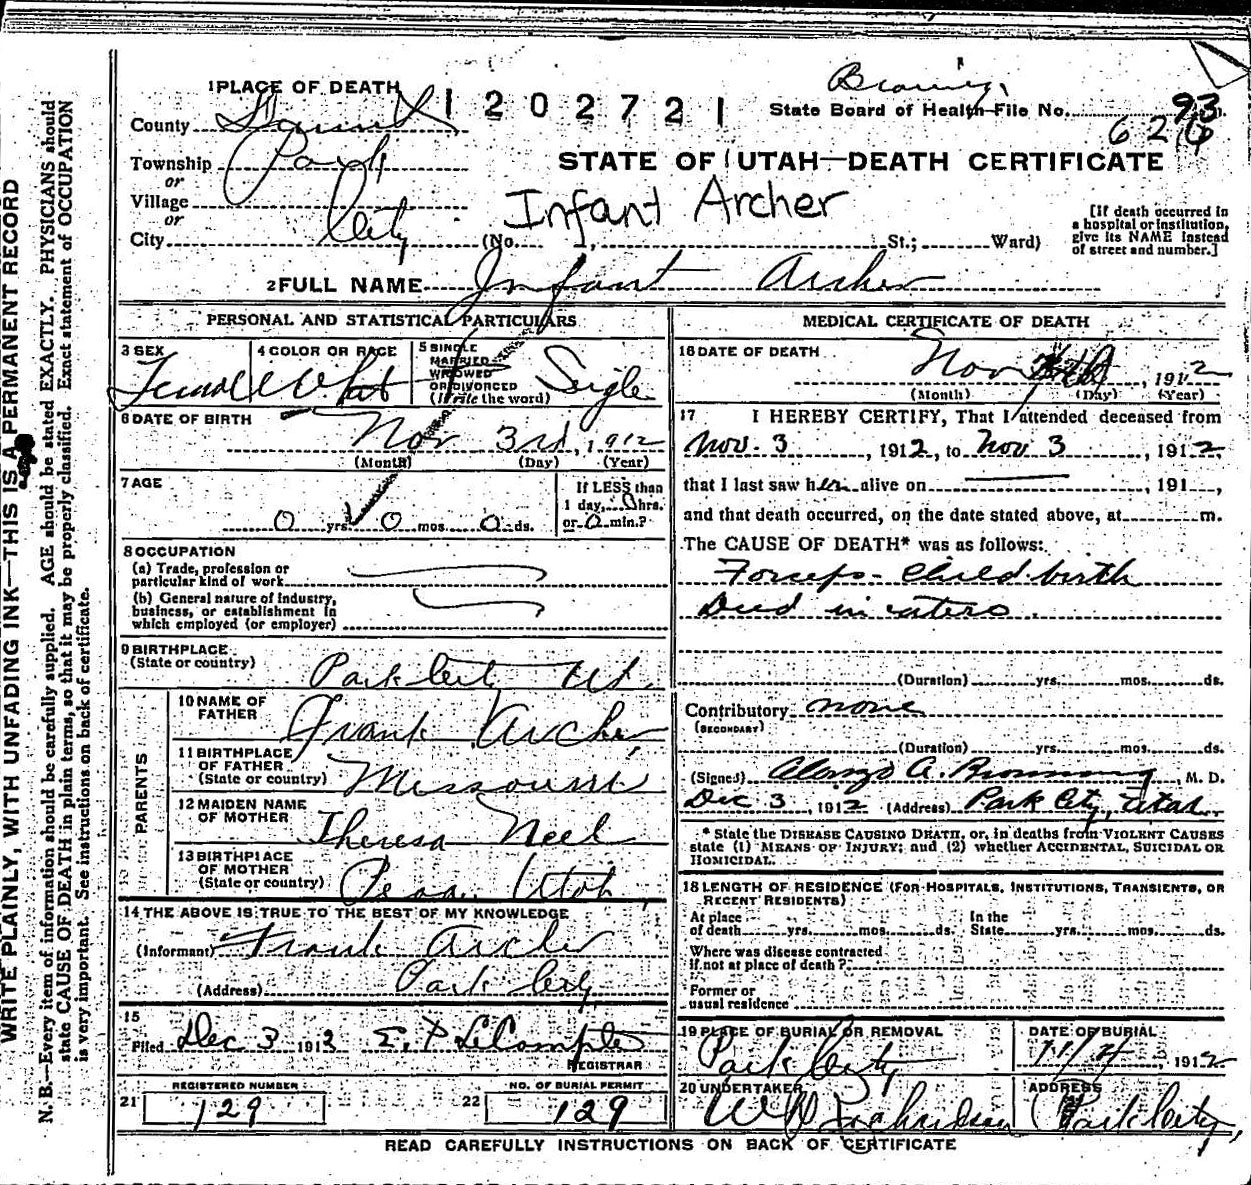 Browning
1 PLACE OF DEATH
1202721
State Board of Health-File No. 93
626
County Summit
Township Park
or
Village
or
City City
STATE OF UTAH—DEATH CERTIFICATE
Infant Archer
(No. , St.; Ward)
[If death occurred in
a hospital or institution,
give its NAME instead
of street and number.]
2 FULL NAME Infant Archer
PERSONAL AND STATISTICAL PARTICULARS
3 SEX
Female
4 COLOR OR RACE
White
5 SINGLE
MARRIED
WIDOWED
OR DIVORCED
(Write the word)
Sigle
6 DATE OF BIRTH
Nov 3rd, 1912
(Month) (Day) (Year)
7 AGE
0 yrs. 0 mos. 0 ds.
If LESS than
1 day, 0 hrs.
or 0 min.?
8 OCCUPATION
(a) Trade, profession or
particular kind of work
(b) General nature of industry,
business, or establishment in
which employed (or employer)
9 BIRTHPLACE
(State or country)
Park City Ut.
PARENTS
10 NAME OF
FATHER
Frank Archer
11 BIRTHPLACE
OF FATHER
(State or country)
Missouri
12 MAIDEN NAME
OF MOTHER
Theresa Neel
13 BIRTHPLACE
OF MOTHER
(State or country)
Utah
14 THE ABOVE IS TRUE TO THE BEST OF MY KNOWLEDGE
(Informant) Frank Archer
(Address) Park City
15
Filed Dec 3 1912 E. P LeCompte
REGISTRAR
REGISTERED NUMBER
21 129
NO. OF BURIAL PERMIT
22 129
MEDICAL CERTIFICATE OF DEATH
16 DATE OF DEATH
Nov , 1912
(Month) (Day) (Year)
17 I HEREBY CERTIFY, That I attended deceased from
Nov. 3 , 1912, to Nov 3 , 1912
that I last saw her alive on , 191 ,
and that death occurred, on the date stated above, at m.
The CAUSE OF DEATH* was as follows:
Forceps - Child birth
Dead in utero.
(Duration) yrs. mos. ds.
Contributory none
(SECONDARY)
(Duration) yrs. mos. ds.
(Signed) Alonzo A. Browning, M. D.
Dec 3, 1912 (Address) Park City, Utah.
* State the DISEASE CAUSING DEATH, or, in deaths from VIOLENT CAUSES
state (1) MEANS OF INJURY; and (2) whether ACCIDENTAL, SUICIDAL OR
HOMICIDAL.
18 LENGTH OF RESIDENCE (FOR HOSPITALS, INSTITUTIONS, TRANSIENTS, OR
RECENT RESIDENTS)
At place
of death yrs. mos. ds.
In the
State yrs. mos. ds.
Where was disease contracted
if not at place of death?
Former or
usual residence
19 PLACE OF BURIAL OR REMOVAL
Park City
DATE OF BURIAL
11/4, 1912
20 UNDERTAKER
W Richardson
ADDRESS
Park City,
READ CAREFULLY INSTRUCTIONS ON BACK OF CERTIFICATE
WRITE PLAINLY, WITH UNFADING INK—THIS IS A PERMANENT RECORD
N. B.—Every item of information should be carefully supplied. AGE should be stated EXACTLY. PHYSICIANS should
state CAUSE OF DEATH in plain terms, so that it may be properly classified. Exact statement of OCCUPATION
is very important. See instructions on back of certificate.